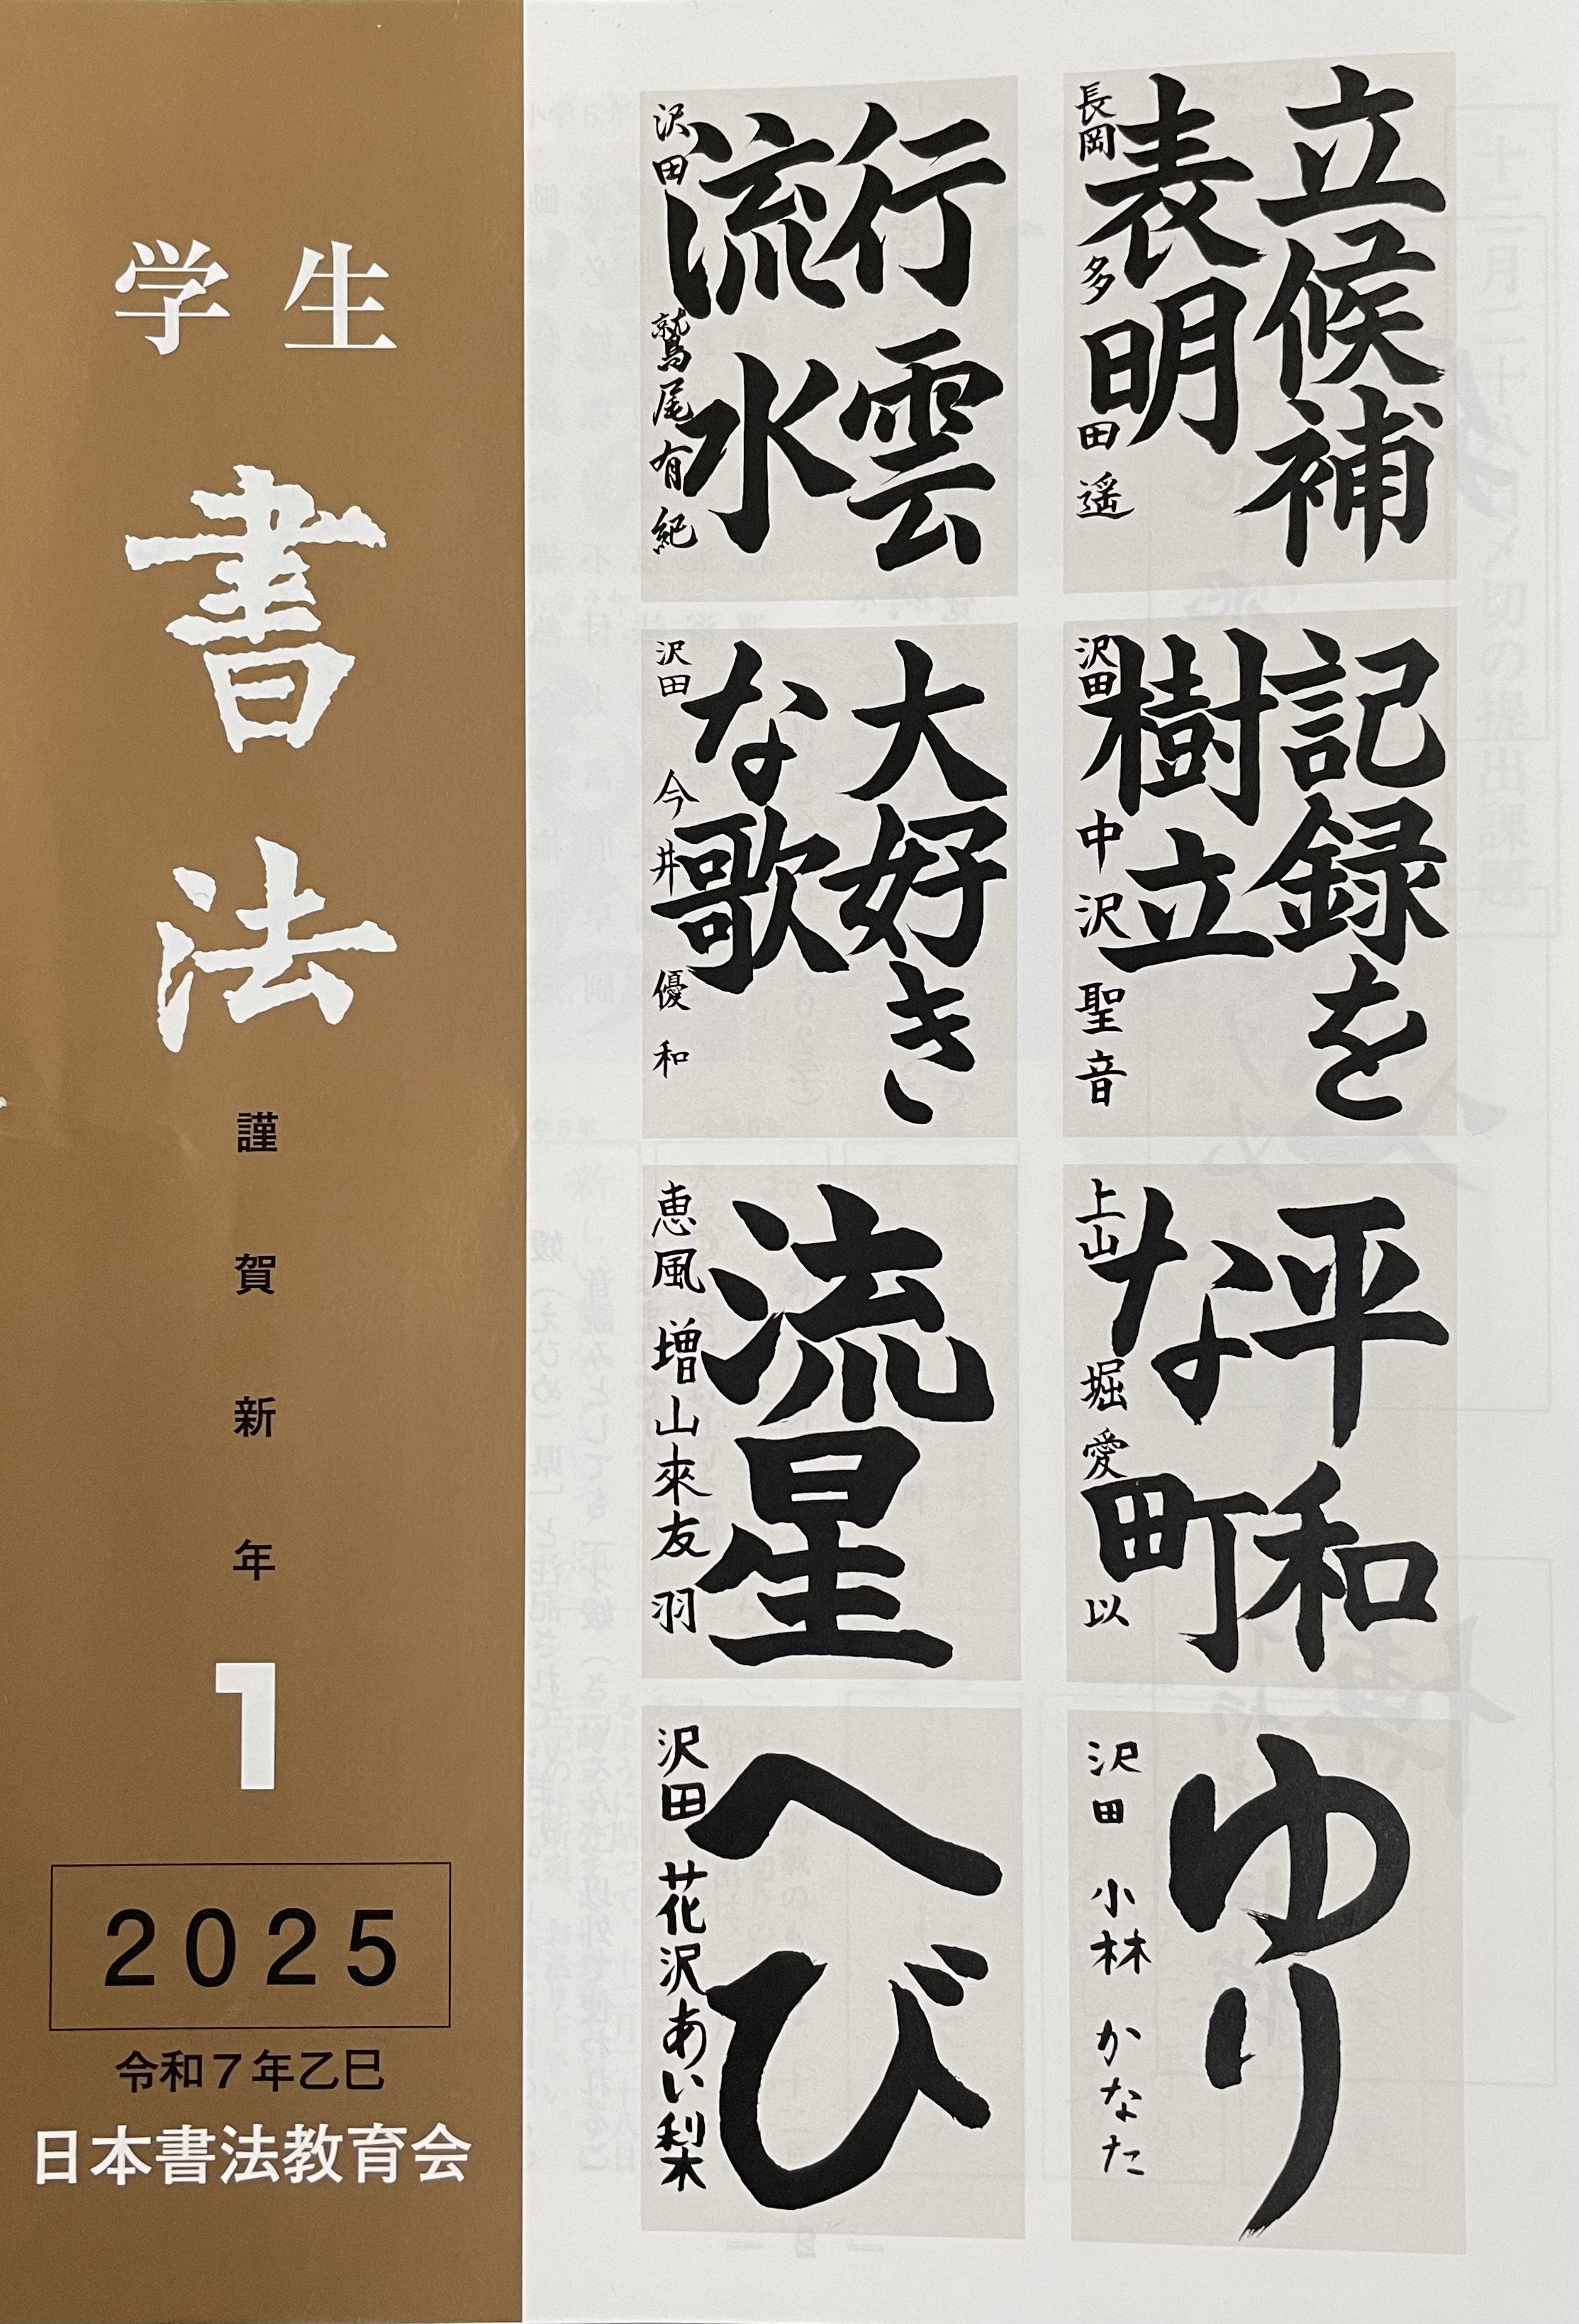 学生
書法
謹賀新年
1
2025
令和7年乙巳
日本書法教育会
立候補
表明
長岡 多田遥
行雲
流水
沢田 鷲尾有紀
記録を
樹立
沢田 中沢聖音
大好き
な歌
沢田 今井優和
平和
な町
上山 堀愛以
流星
恵風 増山來友羽
ゆり
沢田 小林かなた
へび
沢田 花沢あい梨